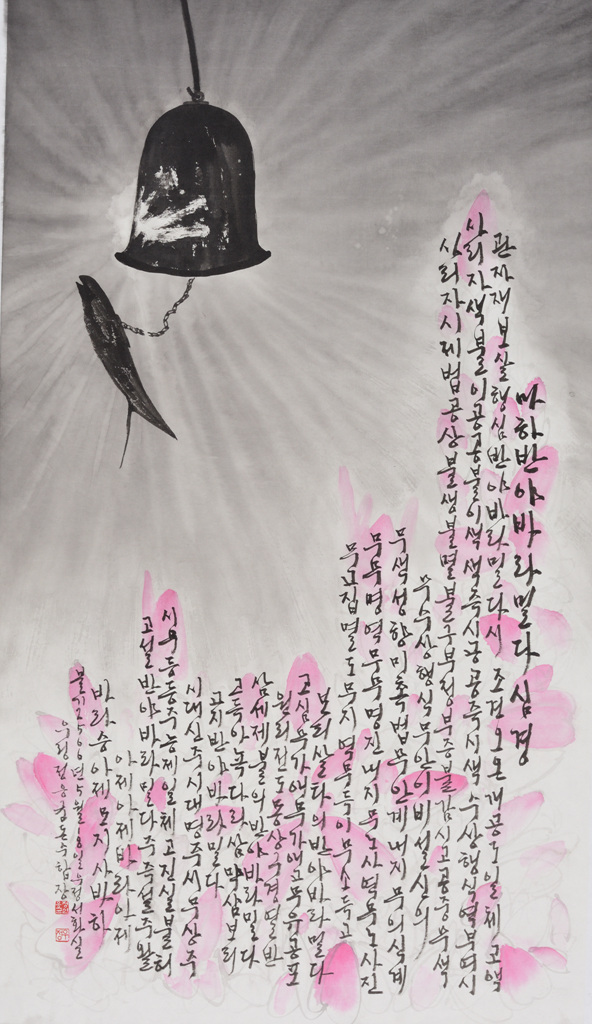 마하반야바라밀다심경
관자재보살행심반야바라밀다시 조견오온개공도일체고액
사리자색불이공공불이색색즉시공공즉시색 수상행식역부여시
사리자시제법공상불생불멸불구부정부증불감시고공중무색
무수상행식무안이비설신의
무색성향미촉법무안계내지무의식계
무무명역무무명진내지무노사역무노사진
무고집멸도무지역무득이무소득고
보리살타의반야바라밀다
고심무가애무가애고무유공포
원리전도몽상구경열반
삼세제불의반야바라밀다
고득아뇩다라삼먁삼보리
고지반야바라밀다
시대신주시대명주시무상주
시무등등주능제일체고진실불허
고설반야바라밀다주즉설주왈
아제아제바라아제
바라승아제 모지사바하
불기 5월18일우정서화실
우정 돈수합장